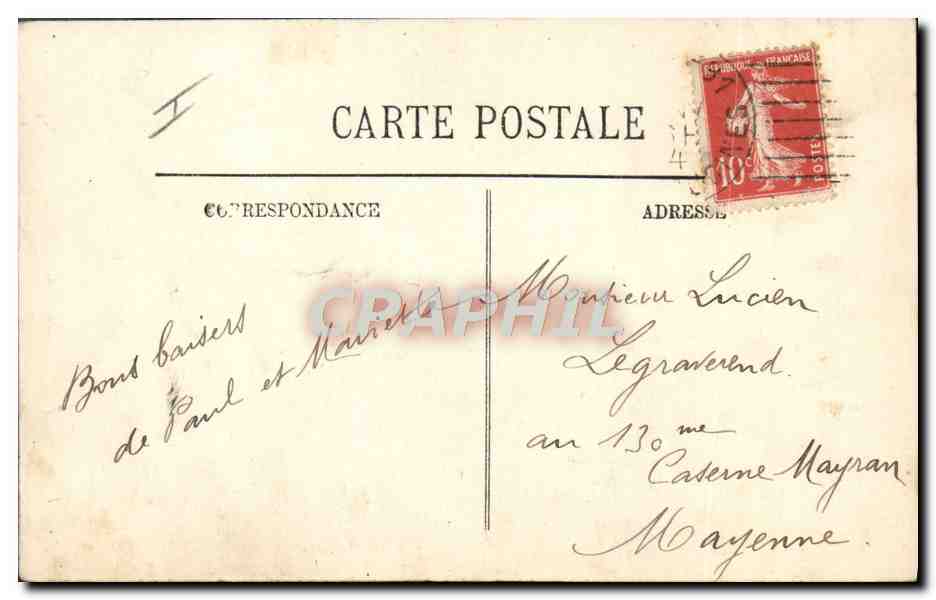 I
CARTE POSTALE
RÉPUBLIQUE FRANÇAISE
10c
POSTES
CORRESPONDANCE
ADRESSE
Bons baisers
de Paul et
Monsieur Lucien
Legraverend.
au 130me
Caserne Mayran
Mayenne.
CPAPHIL